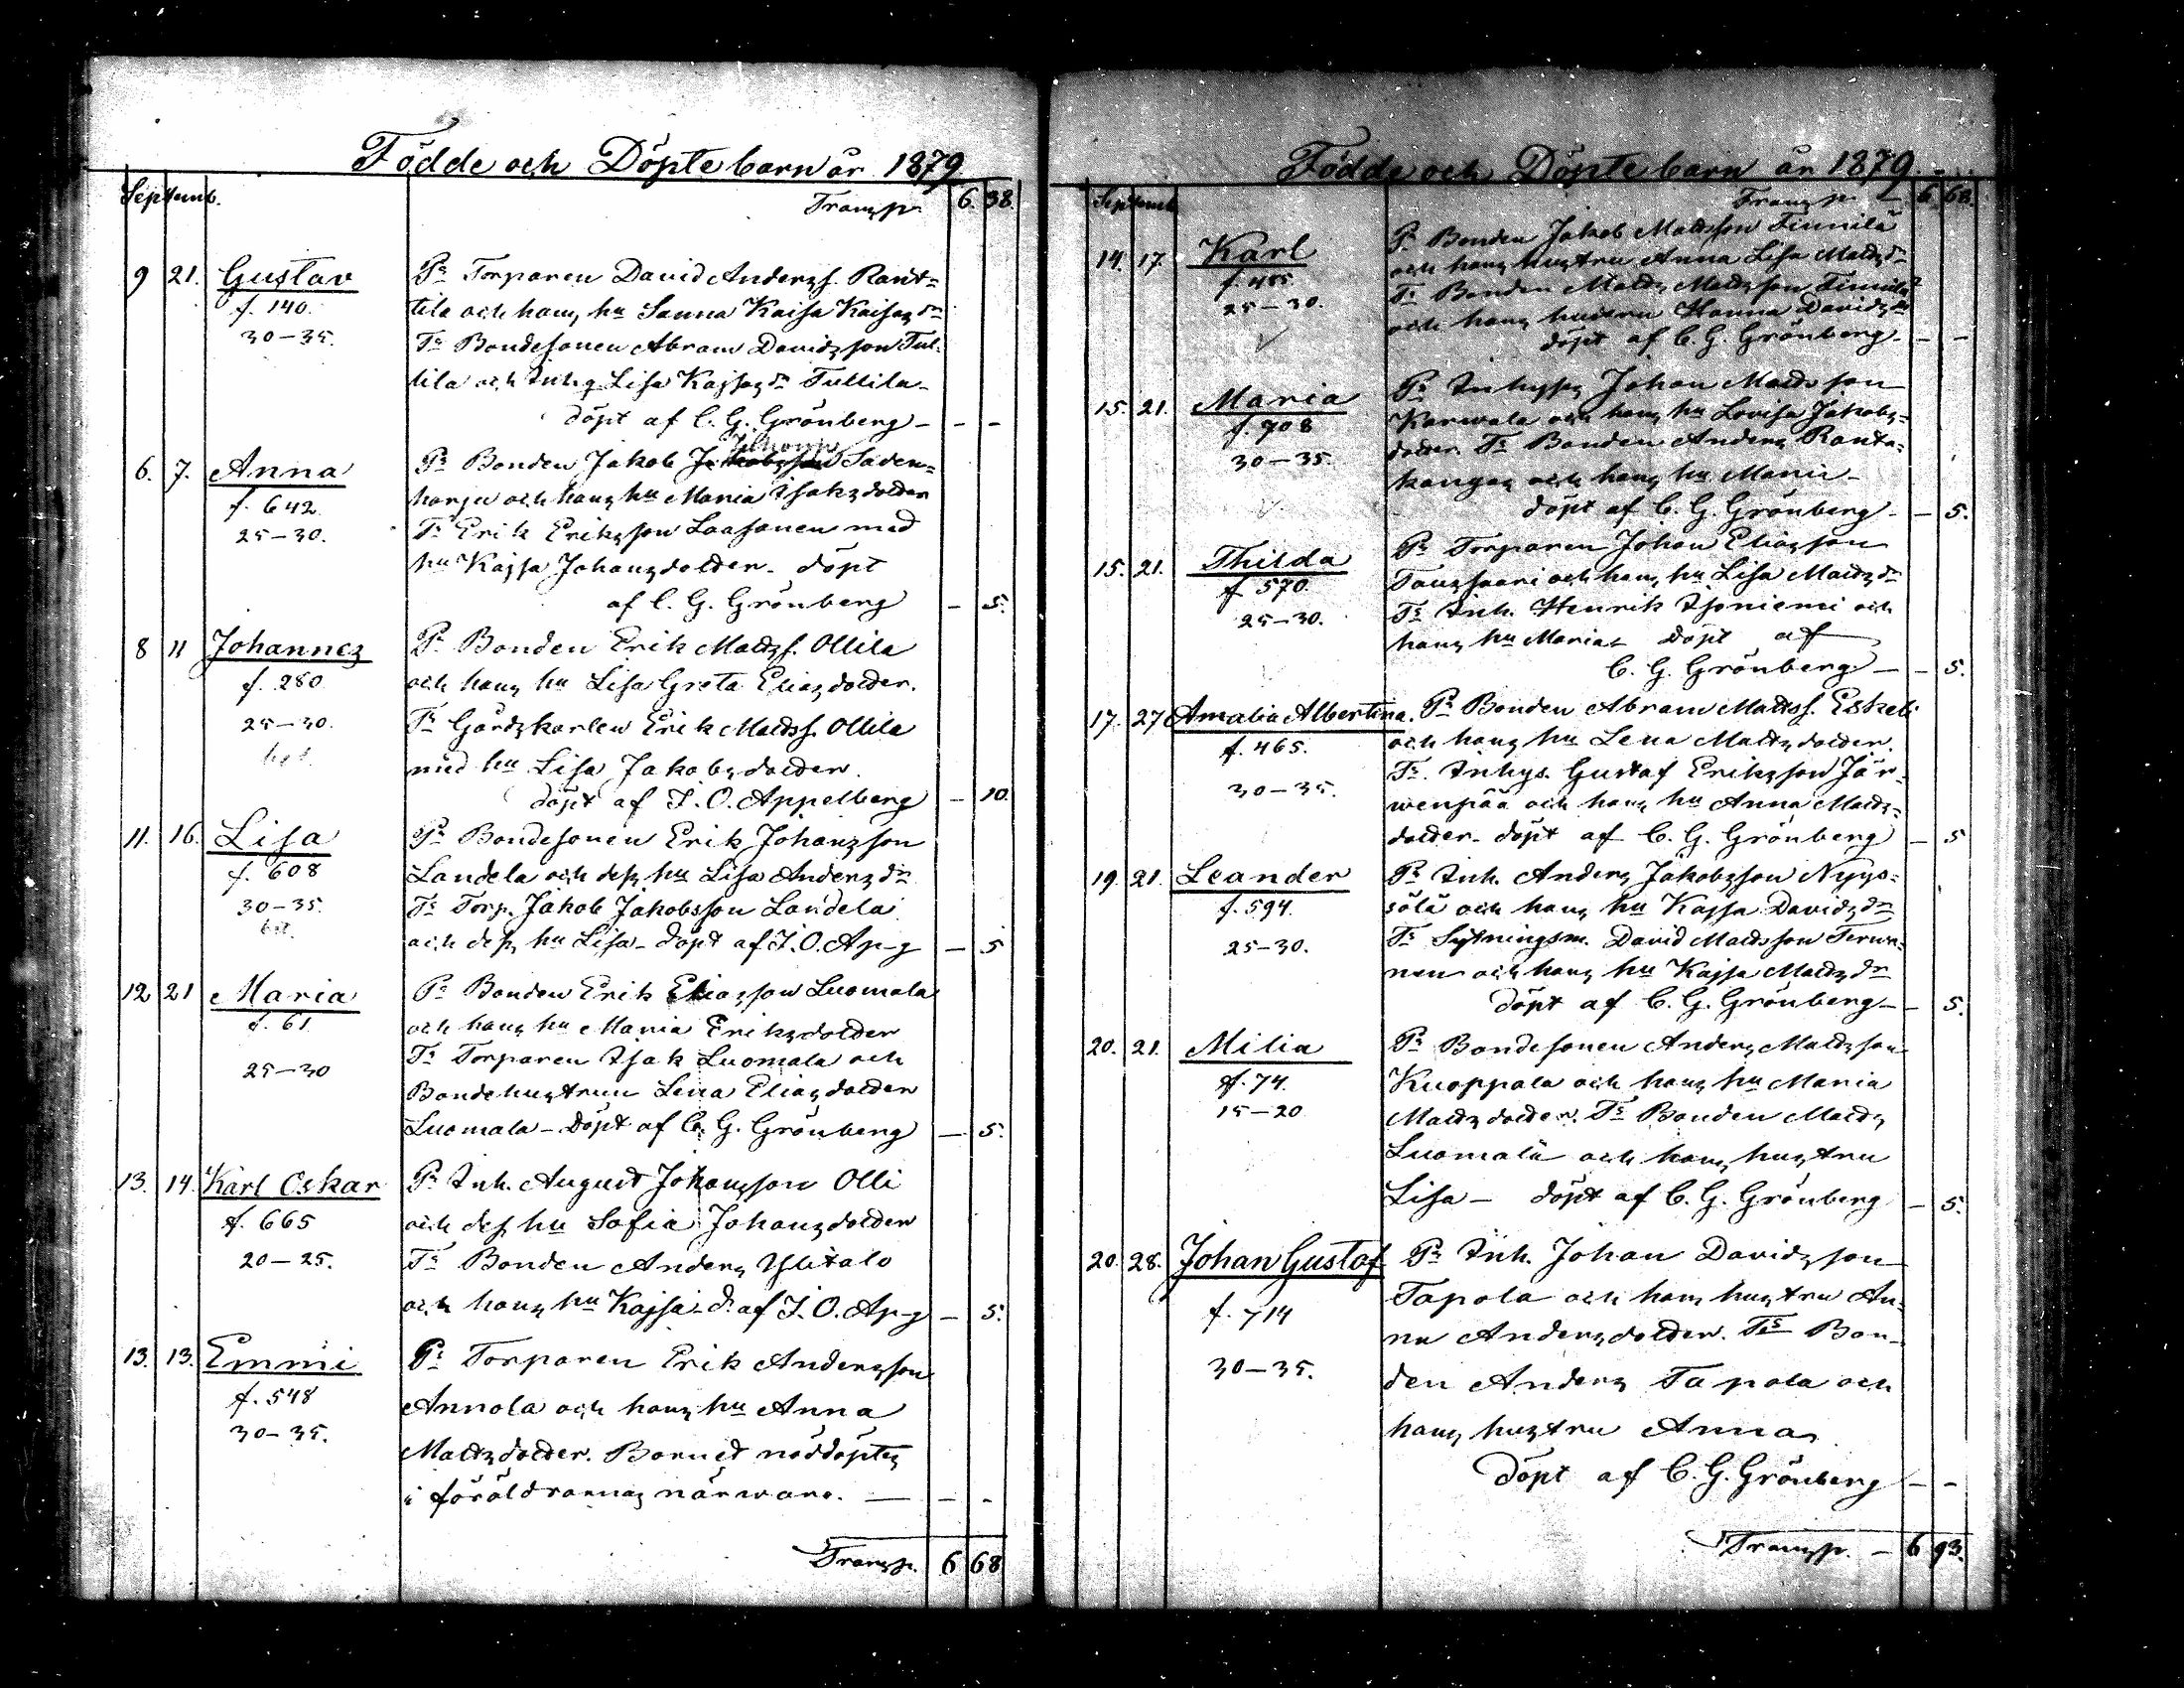 Födde och Döpte barn år 1879
Septemb.
Transp. 6. 38.
9 21. Gustav Prs Torparen David Anderss. Rant=
f. 140. tila och hans hu Sanna Kaisa Kaisas dr
30-35. Ts Bondesonen Abram Davidsson Tul=
lila och Inhs Lisa Kajsas dr Tullila-
döpt af C. G. Grönberg - - -
Johanss
6. 7. Anna Prs Bonden Jakob Jakobsson Saden=
f. 642. harju och hans hu Maria Isaksdotter
25-30. Ts Erik Eriksson Laasanen med
hu Kajsa Johansdotter. döpt
af C. G. Grönberg - 5.
8 11 Johannes Prs Bonden Erik Matss. Ollila
f. 280 och hans hu Lisa Greta Eliasdotter.
25-30. Ts Gårdskarlen Erik Matss. Ollila
med hu Lisa Jakobsdotter.
döpt af J. O. Appelberg - 10.
11. 16. Lisa Prs Bondesonen Erik Johansson
f. 608 Landela och dess hu Lisa Anders dr
30-35. Ts Torp. Jakob Jakobsson Landela
och dess hu Lisa - döpt af J. O. Ap-g - 5
12 21 Maria Prs Bonden Erik Eliasson Luomala
f. 61. och hans hu Maria Eriksdotter
25-30 Ts Torparen Isak Luomala och
Bondehustrun Lena Eliasdotter
Luomala - Döpt af C. G. Grönberg - 5.
13. 14. Karl Oskar Prs Inh. August Johansson Olli
f. 665 och dess hu Sofia Johansdotter
20-25. Ts Bonden Anders Ylitalo
och hans hu Kajsa - d. af J. O. Ap-g - 5.
13. 13. Emmi Prs Torparen Erik Andersson
f. 548 Annola och hans hu Anna
30-35. Matsdotter. Barnet nöddöptes
i föräldrarnas närvaro. - - -
Transp. 6 68
Födde och Döpte barn år 1879.
Septemb
Transp. - 6 68.
14. 17. Karl Prs Bonden Jakob Matsson Finnilä
f. 485. och hans hustru Anna Lisa Mats dr
25-30. Ts Bonden Mats Matsson Finnilä
och hans hustru Hanna Davids dr
döpt af C. G. Grönberg - - -
15. 21. Maria Prs Inhyses Johan Matsson
f. 708 Karwala och hans hu Lovisa Jakobs=
30-35. dotter. Ts Bonden Anders Ranta=
kangas och hans hu Maria -
döpt af C. G. Grönberg - - 5.
15. 21. Thilda Prs Torparen Johan Eliasson
f. 570. Faussaari och hans hu Lisa Mats dr
25-30. Ts Inh. Henrik Isoniemi och
hans hu Maria - Döpt af
C. G. Grönberg - - 5.
17. 27 Amalia Albertina. Prs Bonden Abram Matss. Eskeli
f. 465. och hans hu Lena Matsdotter.
30-35. Ts. Inhys. Gustaf Eriksson Jär=
wenpää och hans hu Anna Mats=
dotter - döpt af C. G. Grönberg - 5
19. 21. Leander Prs Inh. Anders Jakobsson Nyys=
f. 594. sölä och hans hu Kajsa Davids dr
25-30. Ts Sytningsm. David Matsson Terwa=
nen och hans hu Kajsa Mats dr
döpt af C. G. Grönberg - - 5.
20. 21. Milia Prs Bondesonen Anders Matsson
f. 74. Knoppala och hans hu Maria
15-20 Matsdotter. Ts Bonden Mats
Luomala och hans hustru
Lisa - döpt af C. G. Grönberg - 5.
20. 28. Johan Gustaf Prs Inh. Johan Davidsson
f. 714 Tapola och hans hustru An=
30-35. na Andersdotter. Ts Bon=
den Anders Tapola och
hans hustru Anna
Döpt af C. G. Grönberg - -
Transp. - 6 93.